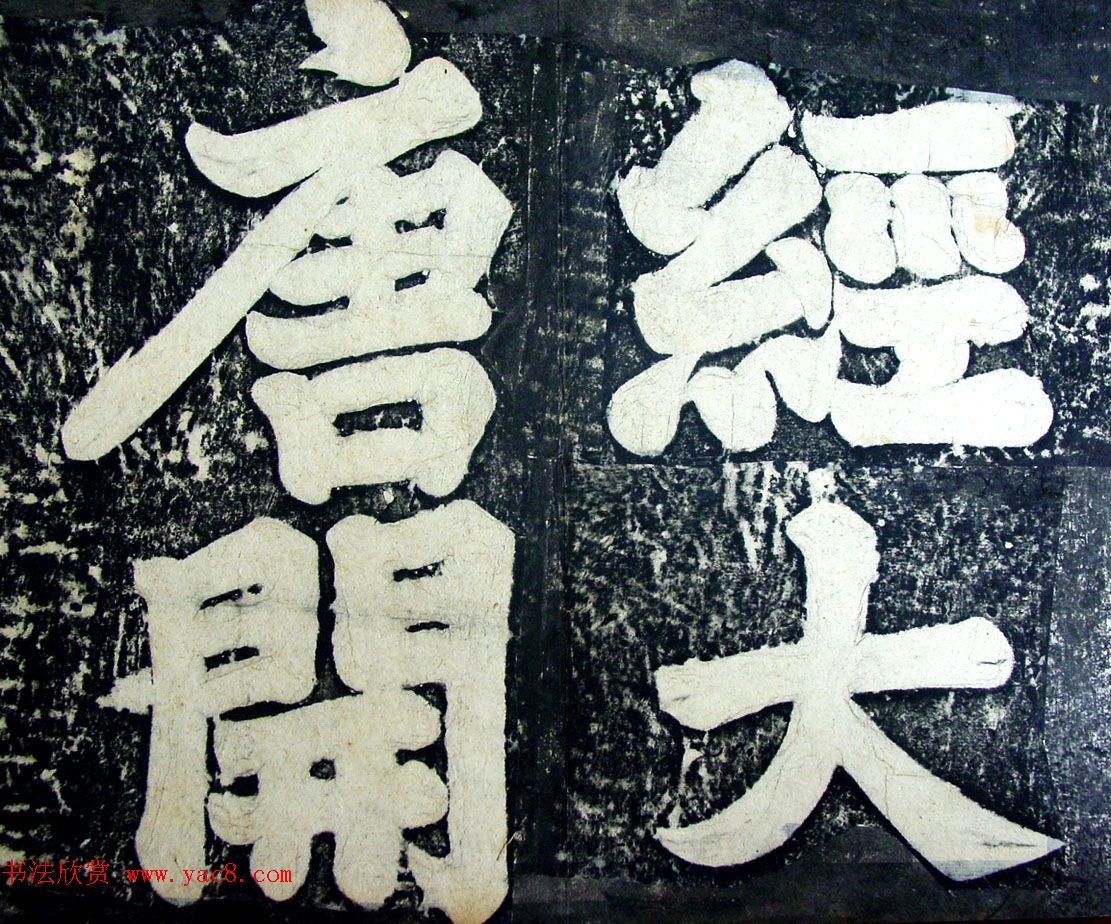 經大
唐開
书法欣赏 www.yac8.com